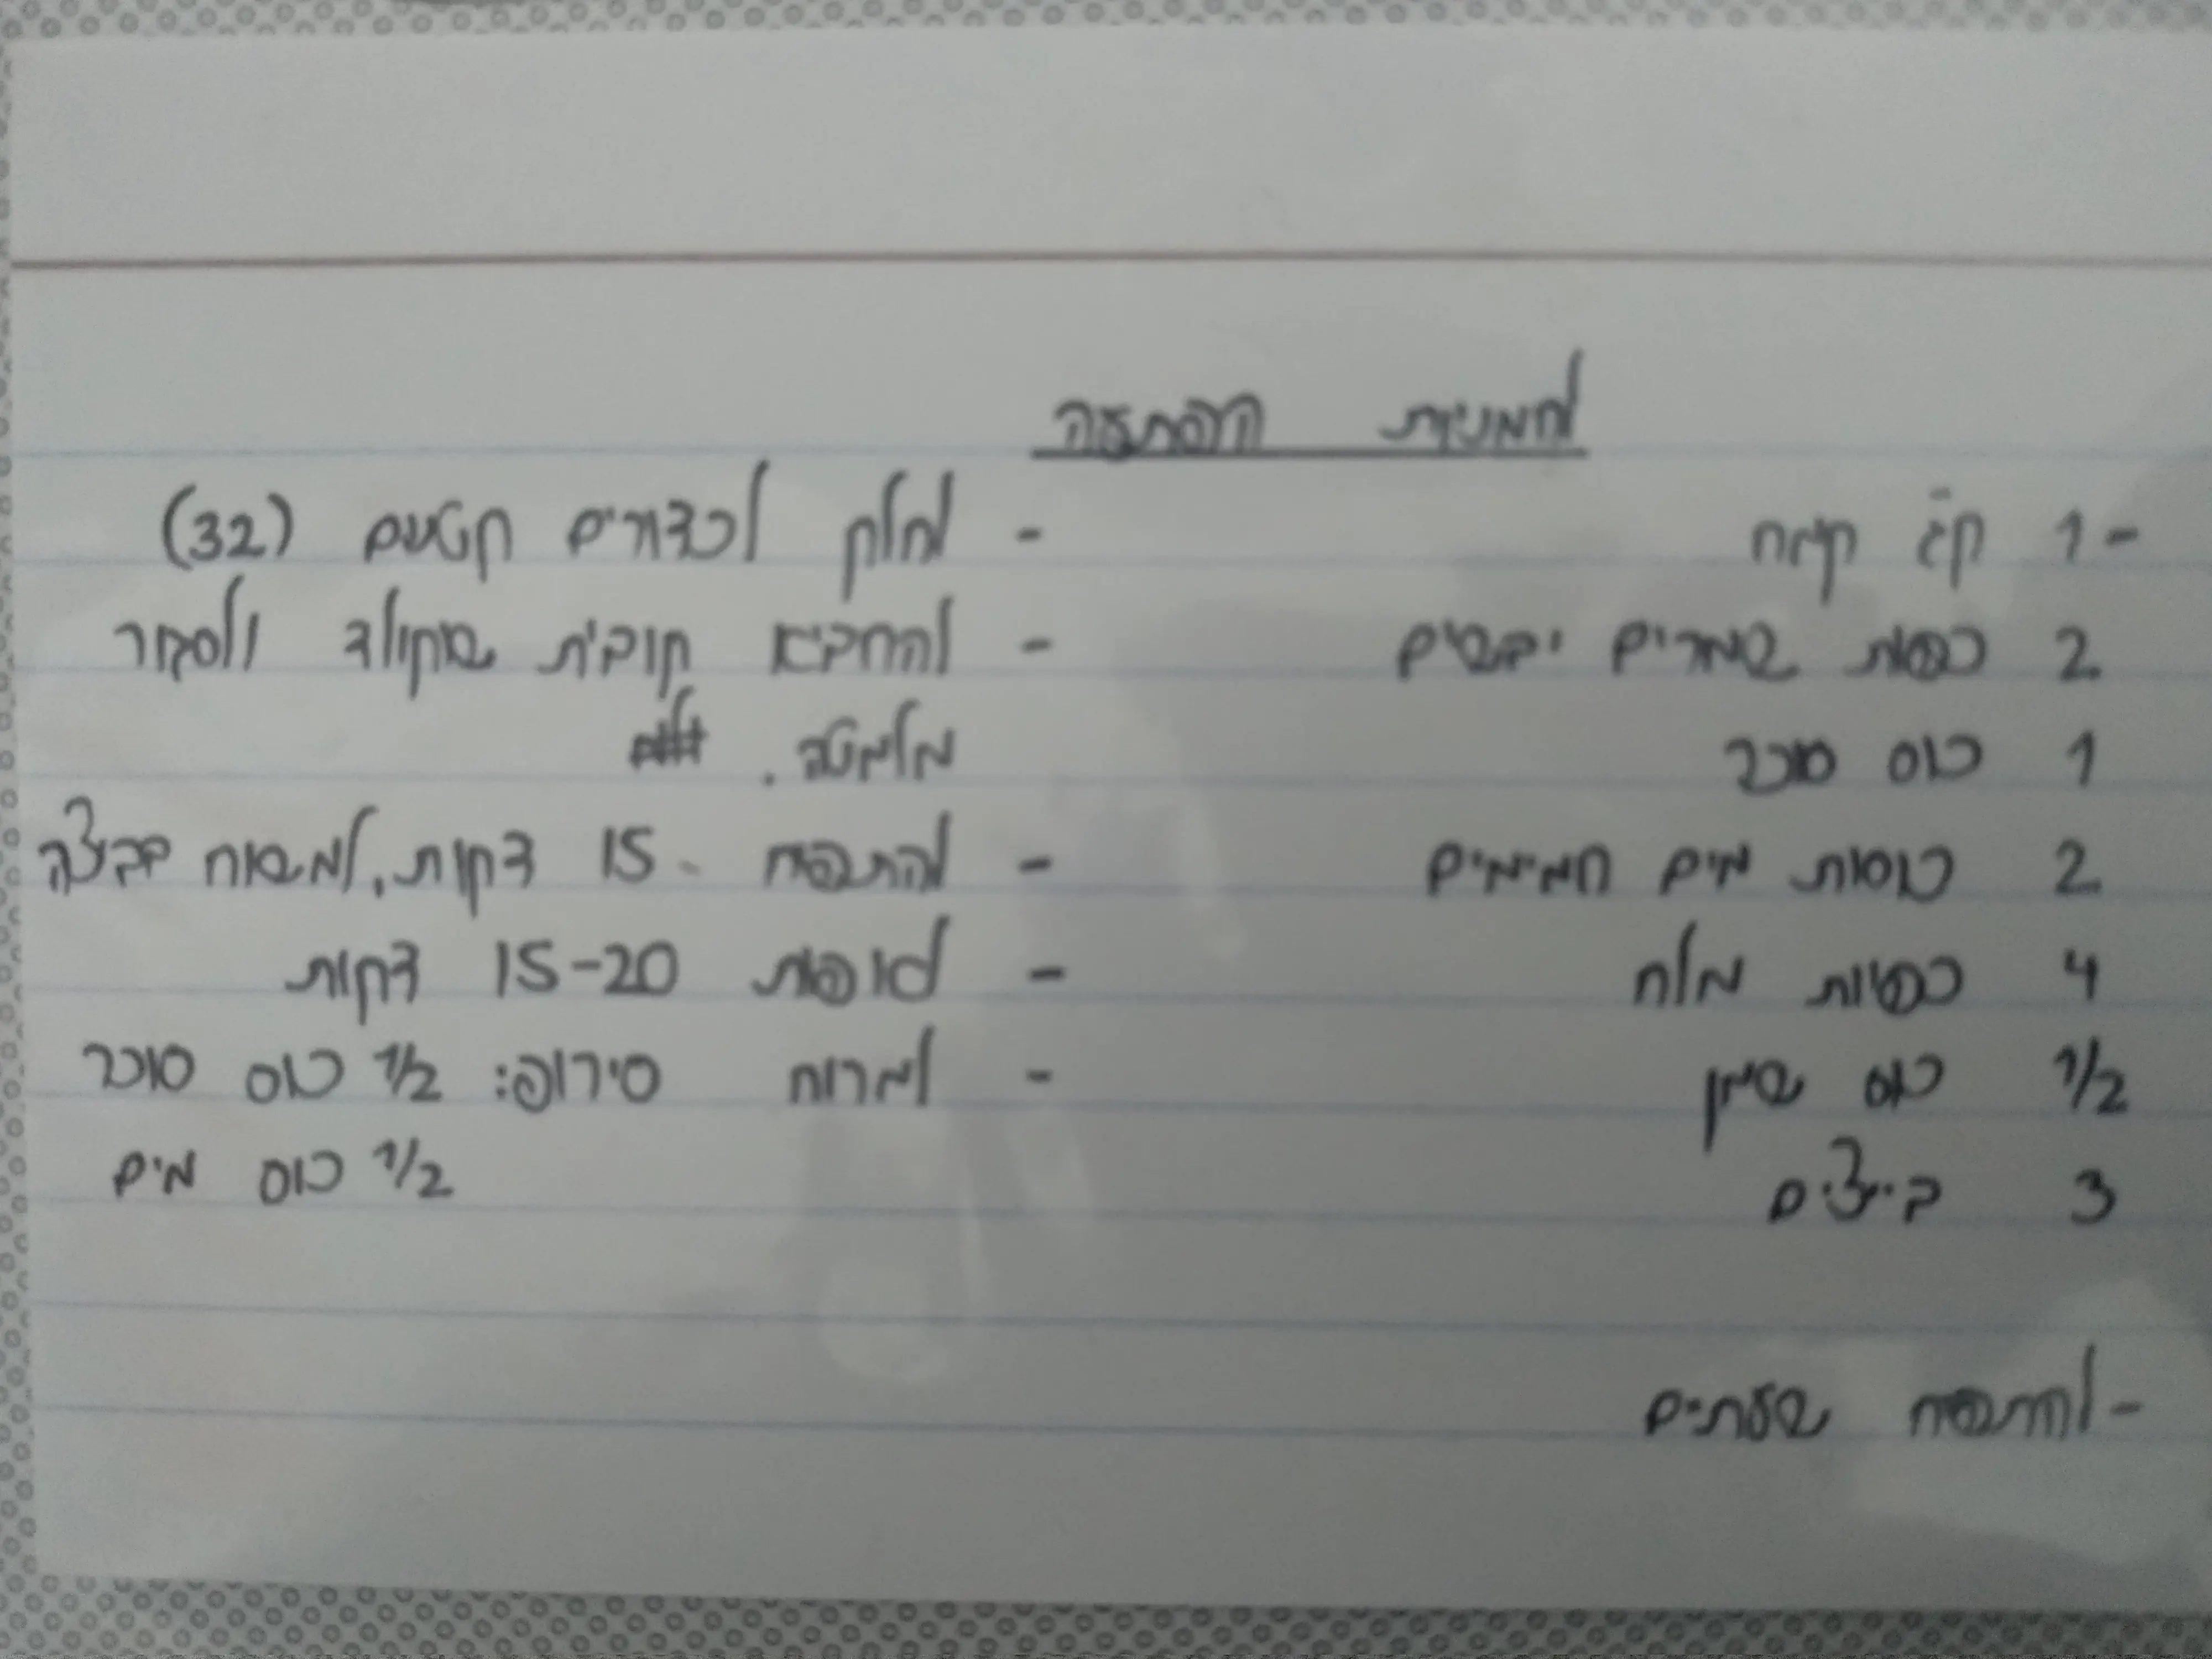 לחמניות הפתעה
- 1 ק״ג קמח
2 כפות שמרים יבשים
1 כוס סוכר
2 כוסות מים חמימים
4 כפיות מלח
1/2 כוס שמן
3 ביצים
- להתפיח שעתיים
- לחלק לכדורים קטנים (32)
- להחביא קובית שוקולד ולסגור
מלמטה.
- להתפיח 15 דקות, למשוח בביצה
- לאפות 15-20 דקות
- למרוח סירופ: 1/2 כוס סוכר
1/2 כוס מים